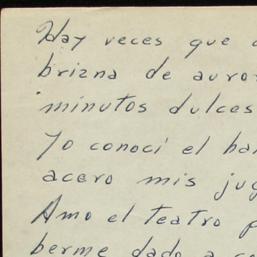 Hay veces que
brizna de auro
minutos dulces
Yo conocí el ba
acero mis jug
Amo el teatro p
berme dado a c